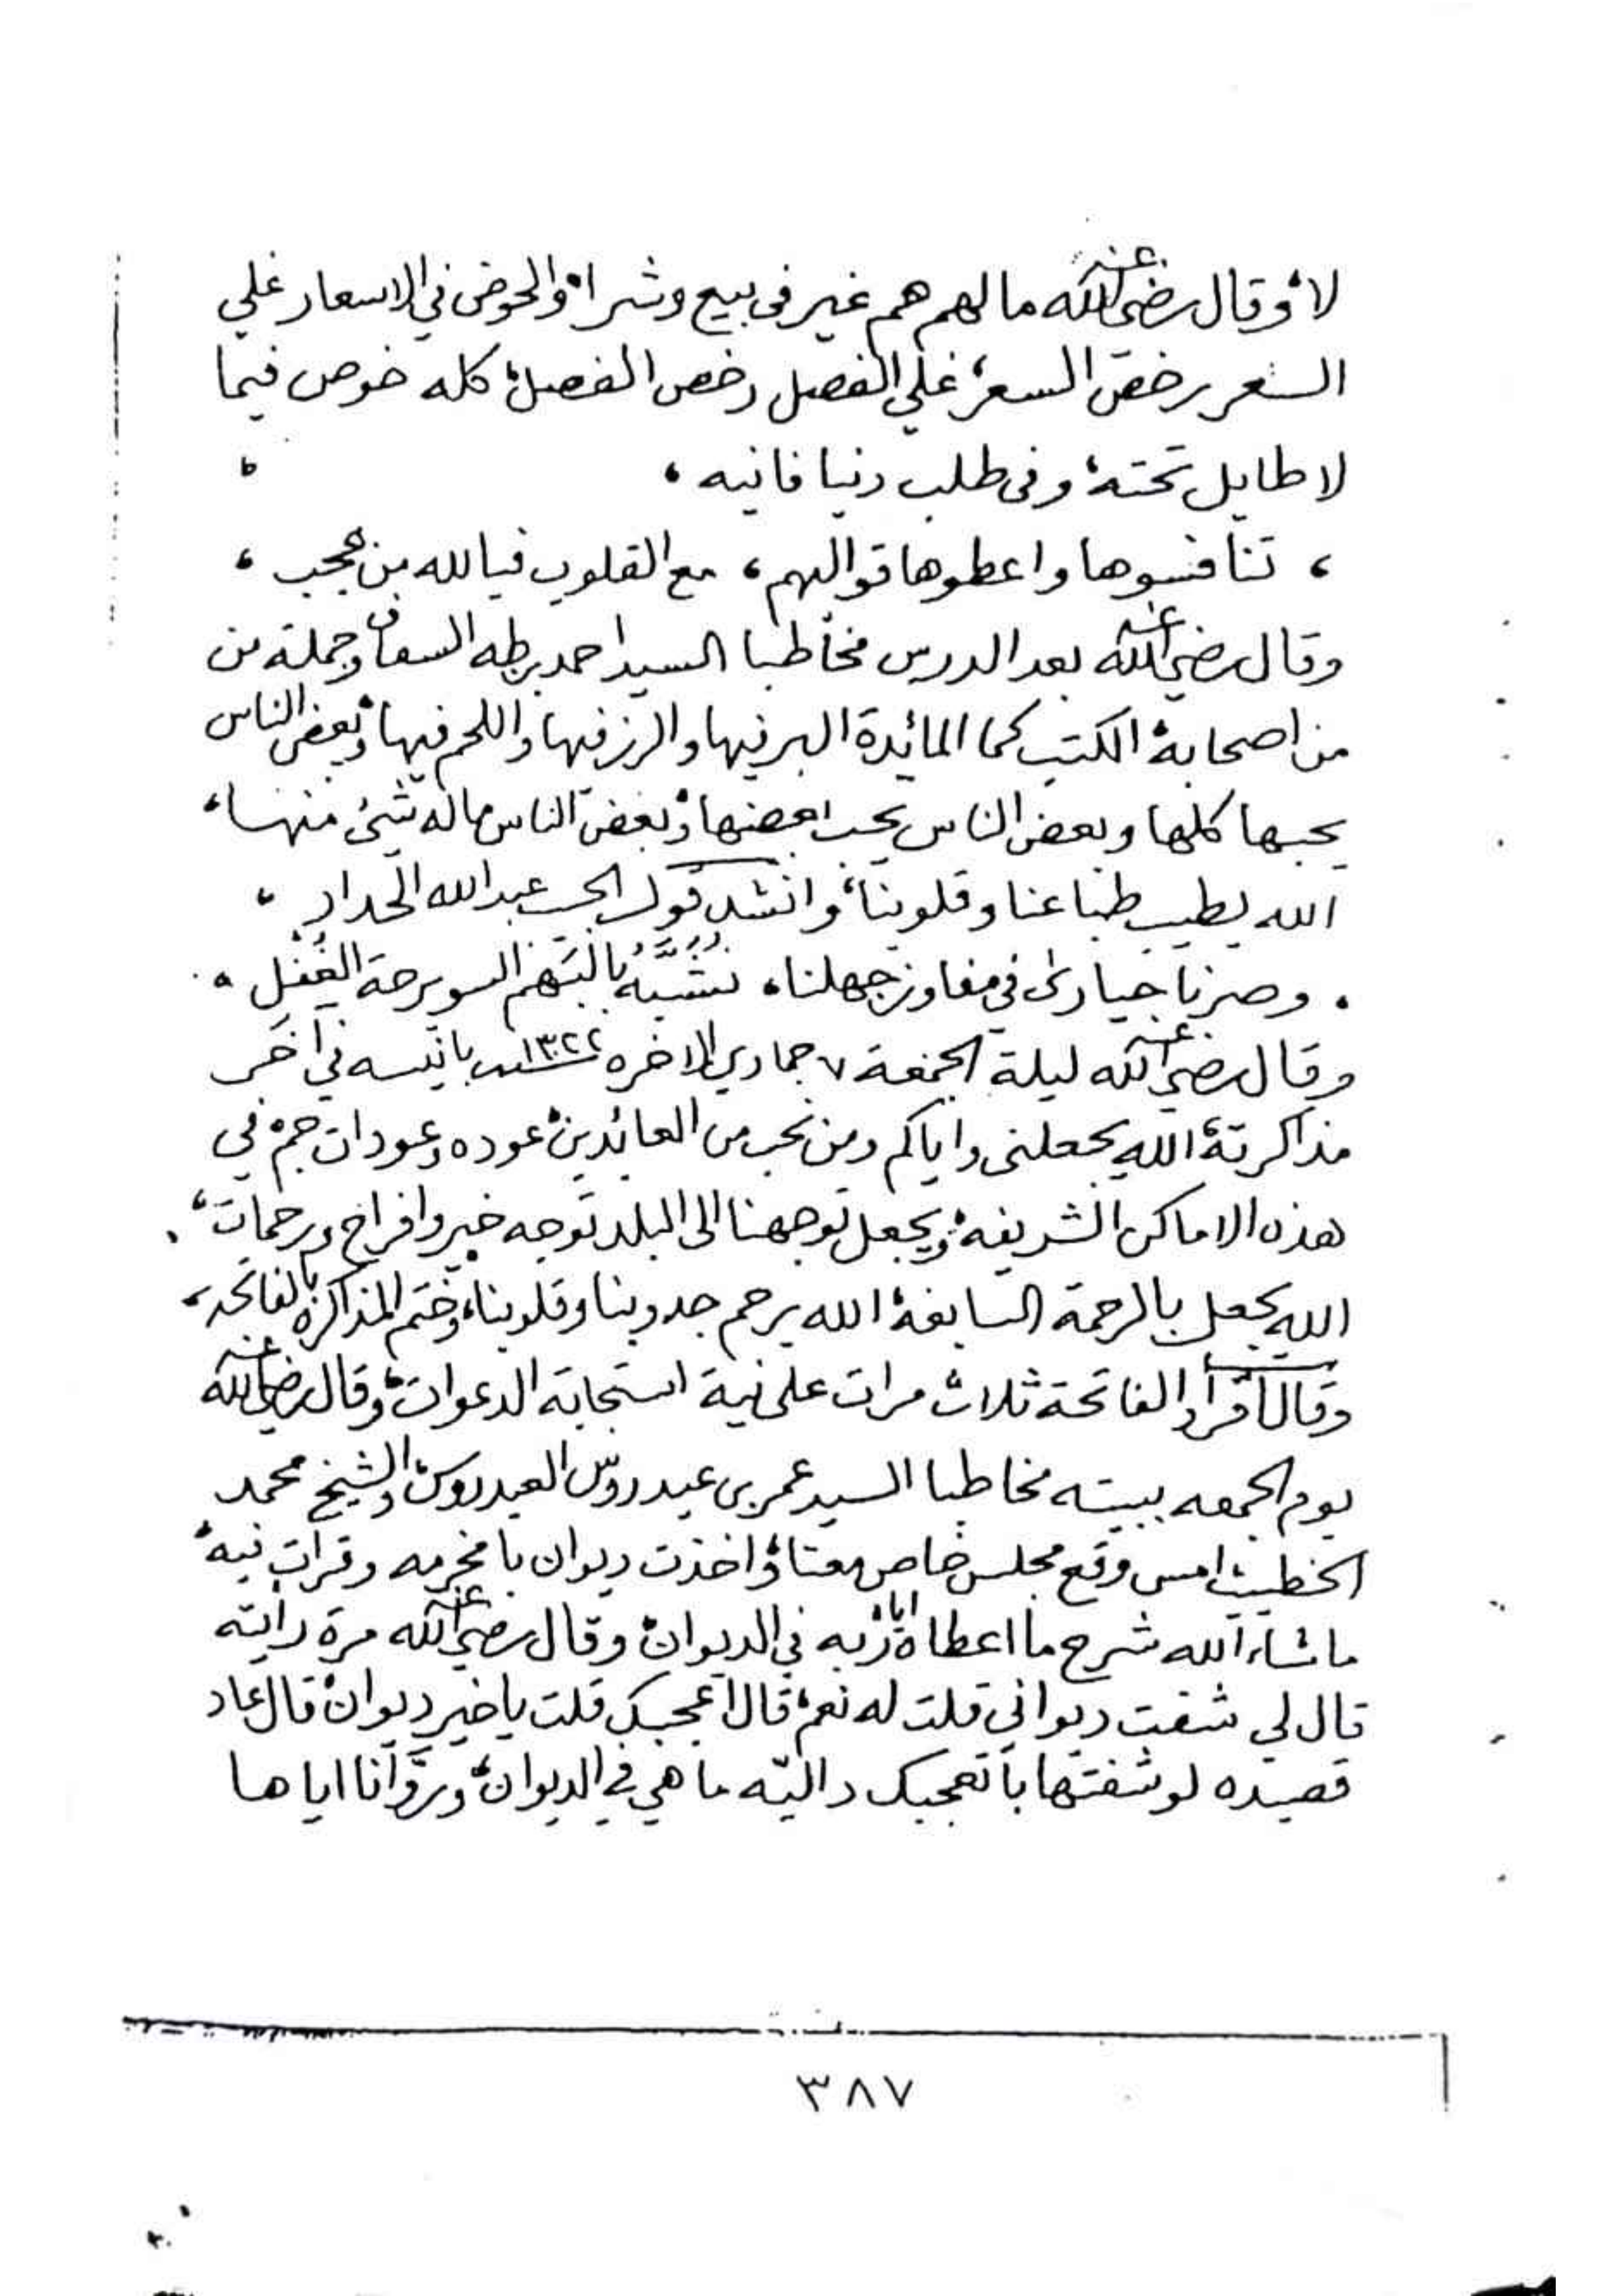 لا، وقال رضي الله عنه ما لهم هم غير في بيع وشراء، والخوض في الاسعار غلي
السعر رخص السعر، غلي الفصل رخص الفصل، كله خوض فيما
لا طايل تحته، وفي طلب دنيا فانيه ،
، تنافسوها واعطوها قوالبهم ، مع القلوب فيا لله من عجب ،
وقال رضي الله عنه بعد الدرس مخاطبا السيد احمد بن طه السقاف وجملة من
من اصحابه، الكتب كما المائدة البر فيها والرز فيها واللحم فيها، وبعض الناس
يحبها كلها وبعض الناس يحب بعضها، وبعض الناس ماله شئ منها،
الله يطيب طباعنا وقلوبنا، وانشد قول الحبيب عبد الله الحداد ،
، وصرنا حيارى في مفاوز جهلنا، نُشَبَّهُ بالبَهْم السويرحة الغُفْل ،
وقال رضي الله عنه ليلة الجمعة ٧ جمادي الاخره سنة ١٣٢٢ بانيسه في آخر
مذاكرته، الله يجعلني واياكم ومن نحب من العائدين، عوده وعودات جم، في
هذه الاماكن الشريفه، ويجعل توجهنا الى البلد توجه خير وافراح ورحمات،
الله يعجل بالرحمة السابغه، الله يرحم جدوبنا وقلوبنا، وختم المذاكره بالفاتحه،
وقال اقرأوا الفاتحة ثلاث مرات على نية استجابة الدعوات، وقال رضي الله عنه
يوم الجمعه ببيته مخاطبا السيد عمر بن عيدروس العيدروس، والشيخ محمد
الخطيب، امس وقع مجلس خاص معنا، واخذت ديوان بامخرمه وقرأت فيه،
ما شاء الله شرح ما اعطاه اياه ربه في الديوان، وقال رضي الله عنه مرة رأيته
قال لي شفت ديواني قلت له نعم، قال اعجبك قلت يا خير ديوان، قال عاد
قصيده لو شفتها با تعجبك داليّه ما هي في الديوان، وروّانا اياها
٣٨٧